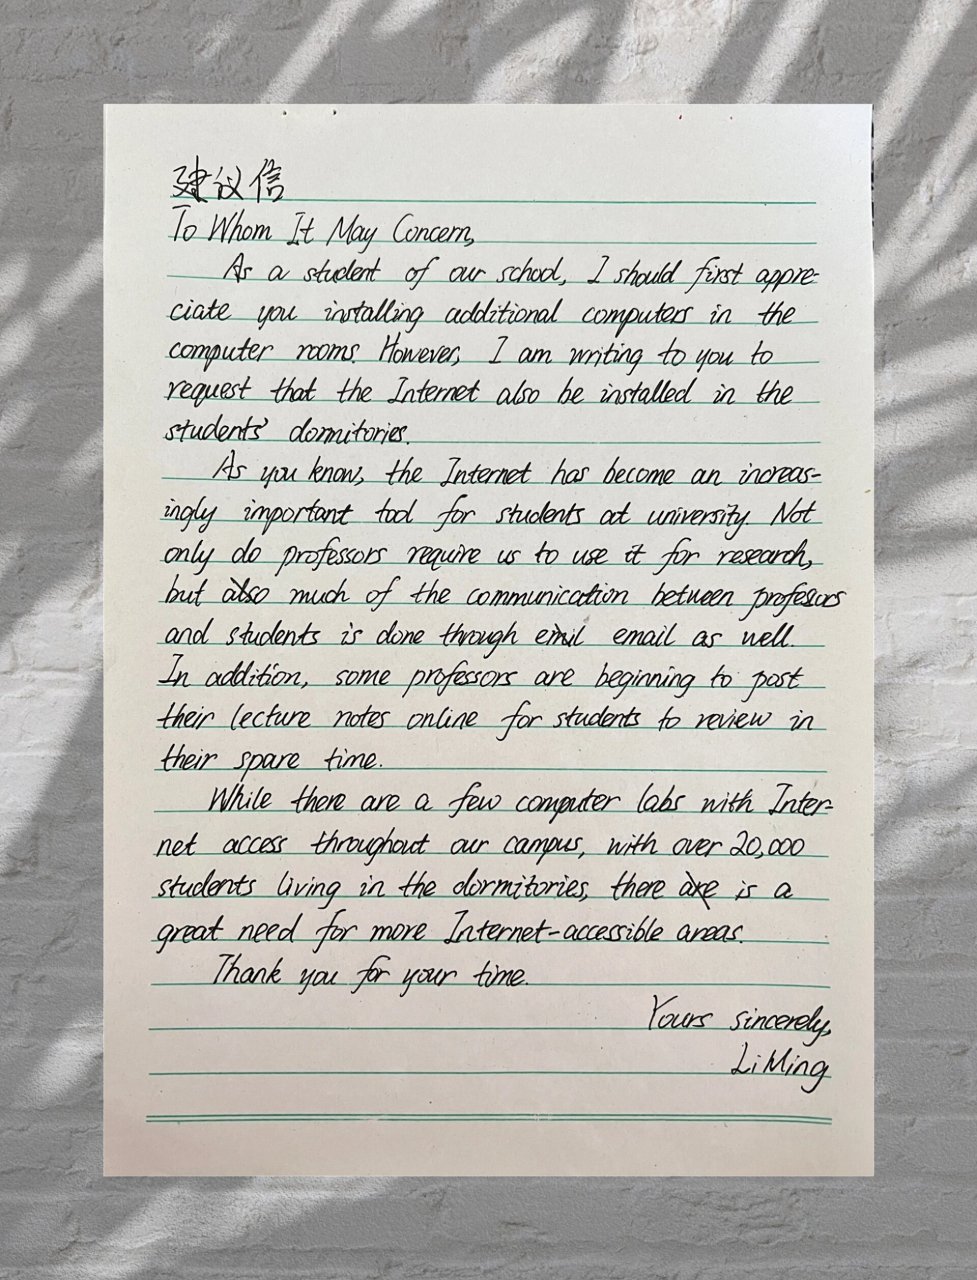 建议信
To Whom It May Concern,
As a student of our school, I should first appre-
ciate you installing additional computers in the
computer rooms. However, I am writing to you to
request that the Internet also be installed in the
students' dormitories.
As you know, the Internet has become an increas-
ingly important tool for students at university. Not
only do professors require us to use it for research,
but also much of the communication between professors
and students is done through email as well.
In addition, some professors are beginning to post
their lecture notes online for students to review in
their spare time.
While there are a few computer labs with Inter-
net access throughout our campus, with over 20,000
students living in the dormitories, there is a
great need for more Internet-accessible areas.
Thank you for your time.
Yours sincerely,
Li Ming